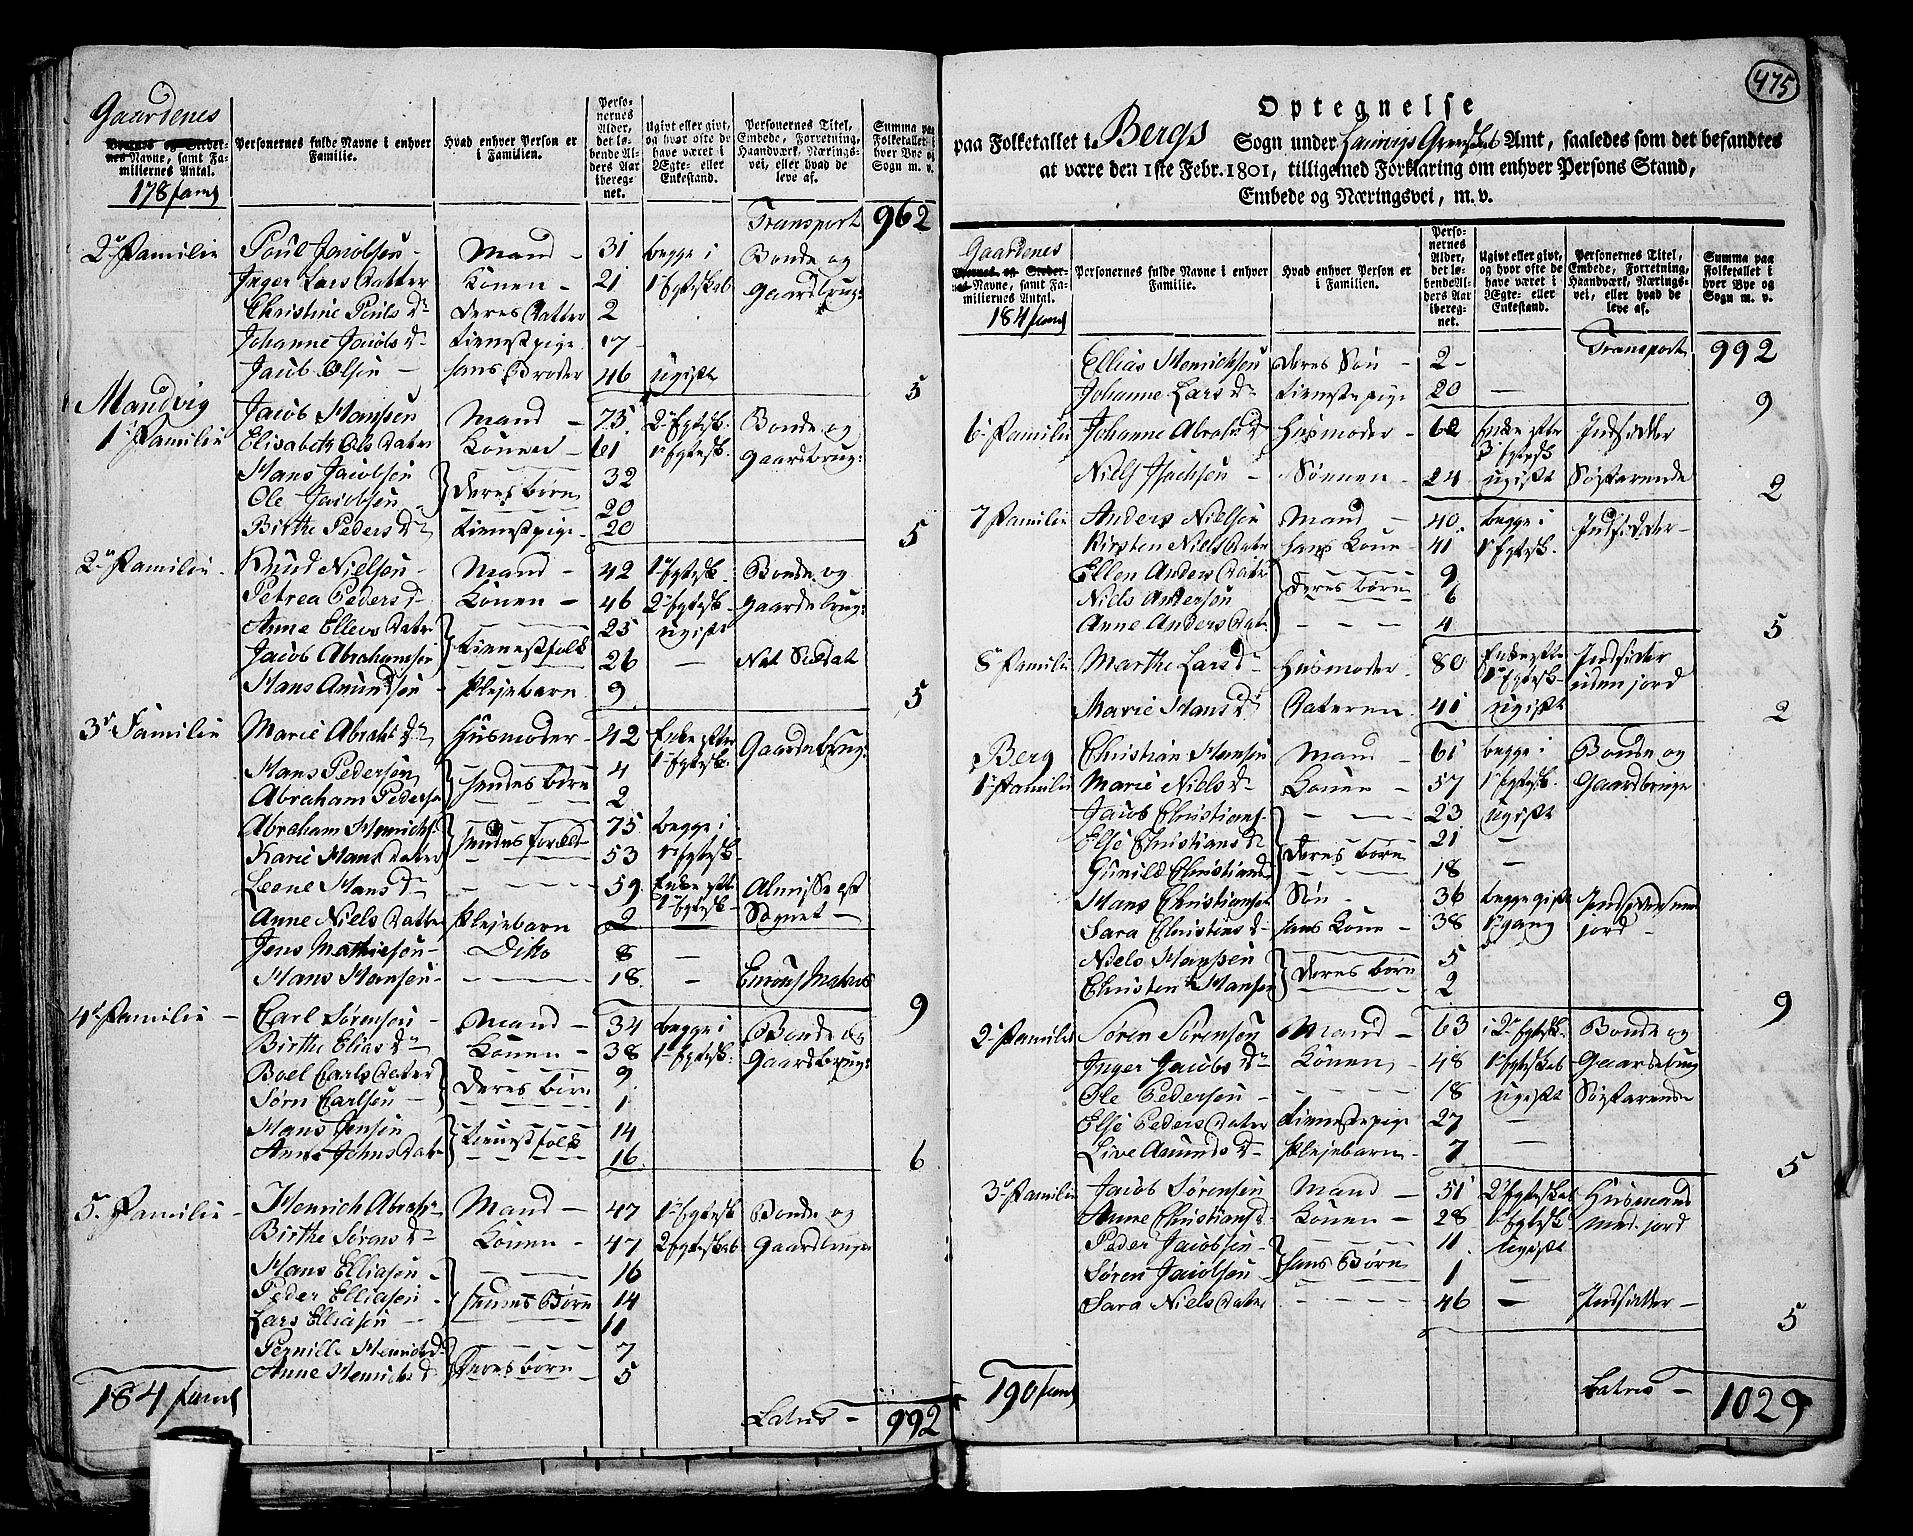 Gaardenes
Byernes og Steder-
nes Navne, samt Fa-
milliernes Antal.
178 fam
Personernes fulde Navne i enhver
Familie.
Hvad enhver Person er
i Familien.
Perso-
nernes
Alder,
det lø-
bende Al-
ders Aar
ibereg-
net.
Ugivt eller givt,
og hvor ofte de
have været i
Ægte- eller
Enkestand.
Personernes Titel,
Embede, Forretning,
Haandværk, Nærings-
vei, eller hvad de
leve af.
Summa paa
Folketallet i
hver Bye og
Sogn m. v.
Transport 962
2 Familie Poul Jacobsen - Mand - 31 begge i Bonde og
Inger Lars Datter Konen - 21 1 Egteskab Gaardbrug:
Christine Pouls Dr Deres Datter 2
Johanne Jacobs Dr tienestpige 17
Jacob Olsen - hans Broder 46 ugift
5
Mandvig Jacob Hansen Mand - 73 2 Egtesk. Bonde og
1 Familie Elisabeth Ols Dater Konen - 61 1 Egtesk. Gaardbrug:
Hans Jacobsen } Deres børn 32
Ole Jacobsen 20
Birthe Peders Dr tienestpige - 20
5
2 Familie - Knud Nielsen - Mand - 42 1 Egtesk. Bonde og
Petrea Peders Dr Konen - 46 2 Egtesk. Gaardebrug:
Anne Ellevs Dater } tienestfolk 25 ugift
Jacob Abrahamsen 26 - Nat Soldat
Hans Amundsen - Plejebarn 9
5
3 Familie Marie Abrah Dr Husmoder - 42 Enke efter Gaardebrug:
1 Egtesk.
Hans Pedersen } hendes børn 4
Abraham Pedersen 2
Abraham Henrichs: } hendes foræld 75 begge i
Karie Hans Dater 53 1 Egtesk.
Leene Hans Dr - - - 59 Enke efter Almisse af
1 Egtesk. Sognet -
Anne Niels Datter Plejebarn 2
Jens Mathisen - Dito 8 -
Hans Hansen - - - - 18 -
9
4 Familie - Carl Sørensen - Mand - 34 begge i Bonde og
Birthe Elias Dr Konen - 38 1 Egtesk. Gaardbrug:
Boel Carls Dater } Deres børn 9
Sørn Carlsen - 1
Hans Jensen } tienestfolk 14
Anne Johns Dater 16
6
5 Familie - Henrich Abrah: Mand - 47 1 Egtesk Bonde og
Birthe Sørens Dr Konen - 47 2 Egteskab Gaardbruge
Hans Elliasen - } hendes Børn 16
Peder Elliasen - 14
Lars Elliasen 11
Pernille Henrichs D } Deres børn 7
Anne Henrichs D 5
184 fami
Latus - 992
475
Optegnelse
paa Folketallet i Bergs Sogn under Laurvigs Grevskab Amt, saaledes som det befandtes
at være den 1ste Febr. 1801, tilligemed Forklaring om enhver Persons Stand,
Embede og Næringsvei, m. v.
Gaardenes
Byernes og Steder-
nes Navne, samt Fa-
miliernes Antal.
184 fami
Personernes fulde Navne i enhver
Familie.
Hvad enhver Person er
i Familien.
Perso-
nernes
Alder,
det lø-
bende Al-
ders Aar
ibereg-
net.
Ugivt eller givt,
og hvor ofte de
have været i
Ægte- eller
Enkestand.
Personernes Titel,
Embede, Forretning,
Haandværk, Nærings-
vei, eller hvad de
leve af.
Summa paa
Folketallet i
hver Bye og
Sogn m. v.
Transport 992
Ellias Henrichsen Deres Søn - 2 -
Johanne Lars Dr tienestepige 20 -
9
6 Familie Johanne Abrah D Husmoder - 62 Enke efter Indsidder
3 Egtesk
Niels Isachsen - Sønnen - 24 ugift Søefarende
2
7 Familie Anders Nielsen Mand - 40 begge i Indsidder -
Kirsten Niels Dater hans Kone - 41 1 Egtesk.
Ellen Anders Dater } Deres børn 9
Niels Andersen 6
Anne Anders Dat: 4
5
8 Familie Marthe Lars Dr Husmoder 80 Enke efter Indsidder
1 Egtesk. uden jord
Marie Hans Dr Dateren 41 ugift
2
Berg Christian Hansen Mand - 61 begge i Bonde og
1 Familie Marie Niels Dr Konen - 57 1 Egtesk. Gaardbruge
Jacob Christians: } Deres børn 23 ugift
Else Christians Dr 21 -
Gunild Christians D 18 -
Hans Christiansen Søn - 36 begge gift Indsidder med
Sara Christens Dr hans Kone - 38 1 gang jord -
Niels Hansen } Deres børn 5
Christen Hansen 2
9
2 Familie Søren Sørensen Mand - 63 i 2 Egtesk. Bonde og
Inger Jacobs Dr Konen - 48 1 Egteskab Gaardebrug
Ole Pedersen - - - 18 ugift Søefarende
Else Peders Dater tienestepige 27 -
Live Amunds Dr Plejebarn - 7 -
5
3 Familie Jacob Sørensen Mand - 51 2 Egteskab Husmand
Anne Christians D. Konen - 28 1 Egtesk. med jord
Peder Jacobsen - } hans Børn 11 ugift
Søren Jacobsen 1 -
Sara Niels Dater - - - 46 - Indsidder -
5
190 fami
Latus - 1029